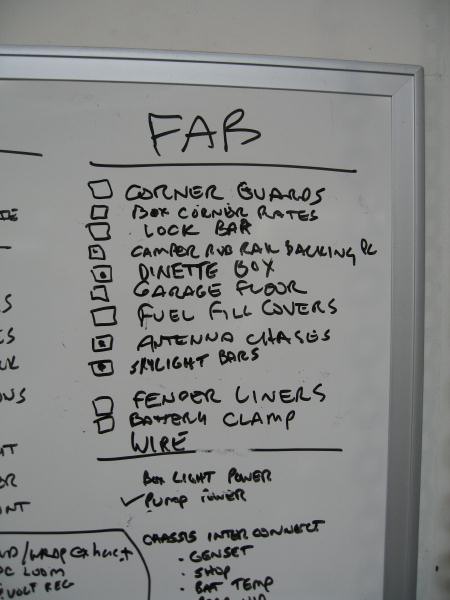 FAB
CORNER GUARDS
BOX CORNER RATES
LOCK BAR
CAMPER RUB RAIL BACKING PC
DINETTE BOX
GARAGE FLOOR
FUEL FILL COVERS
ANTENNA CHASES
SKYLIGHT BARS
FENDER LINERS
BATTERY CLAMP
WIRE
BOX LIGHT POWER
✓ PUMP POWER
CHASSIS INTERCONNECT
• GENSET
• SHOP
• BAT TEMP
VOLT REG